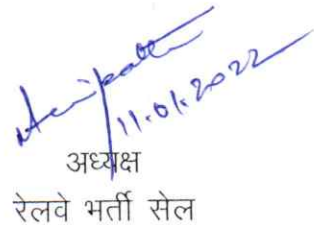 11.01.2022
अध्यक्ष
रेलवे भर्ती सेल